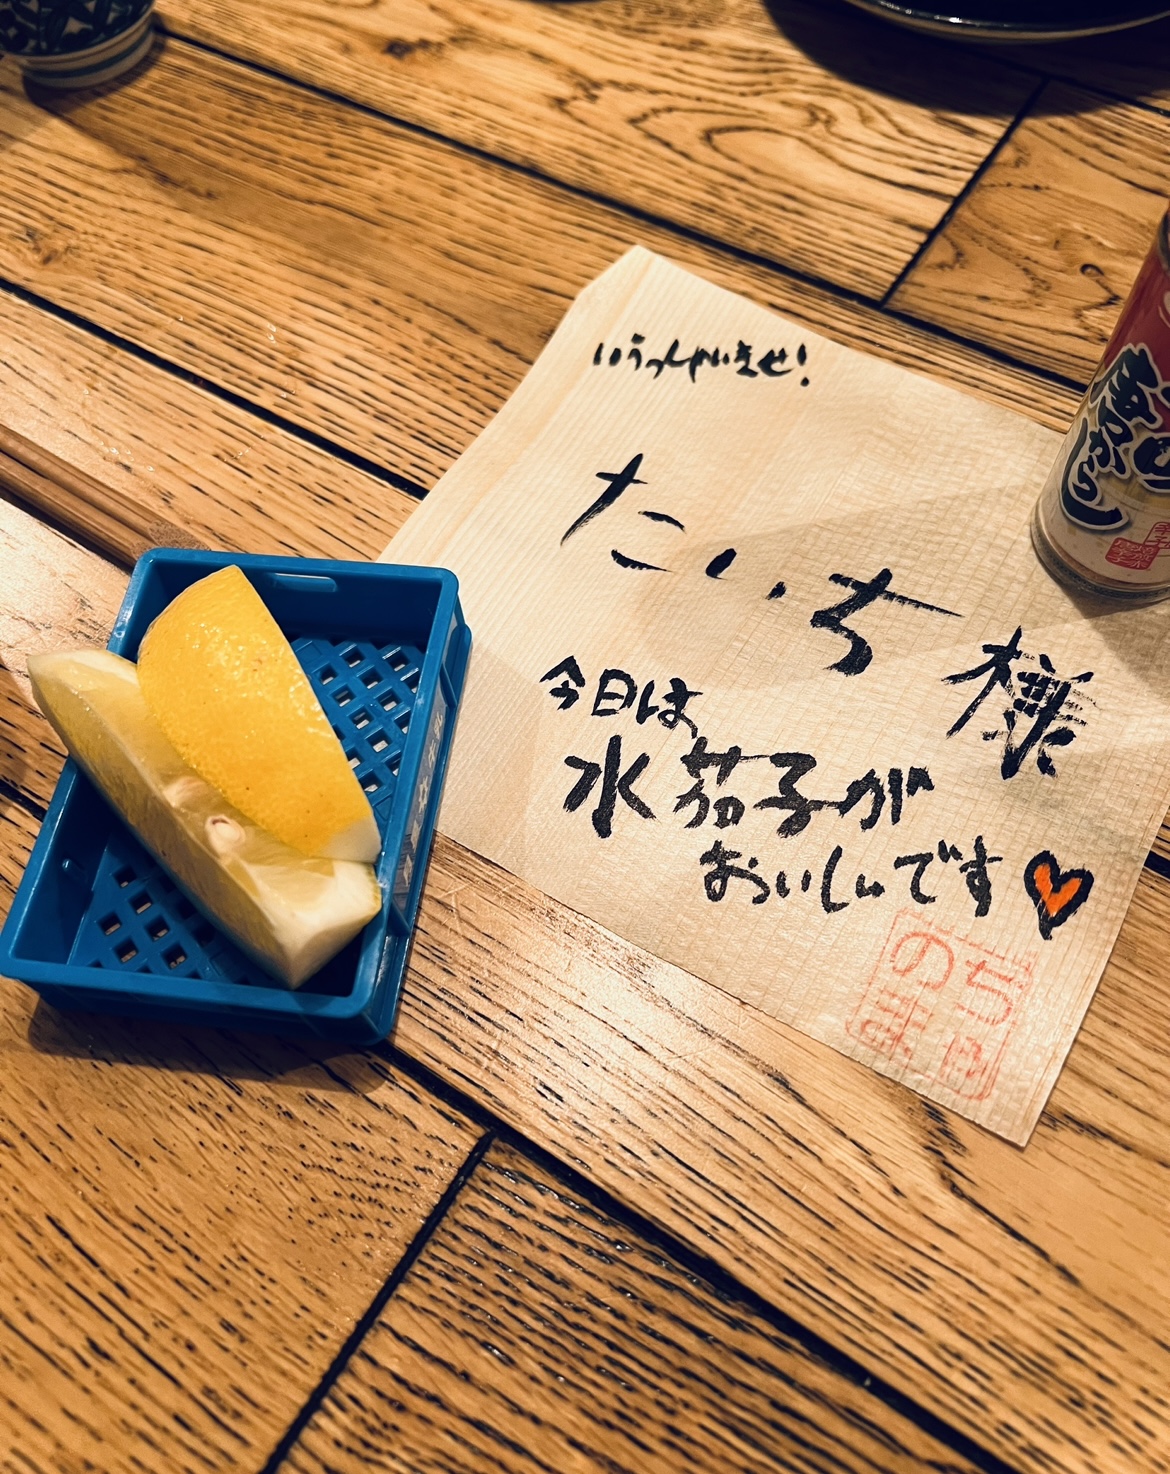 いらっしゃいませ!
たいち様
今日は
水茄子が
おいしいです